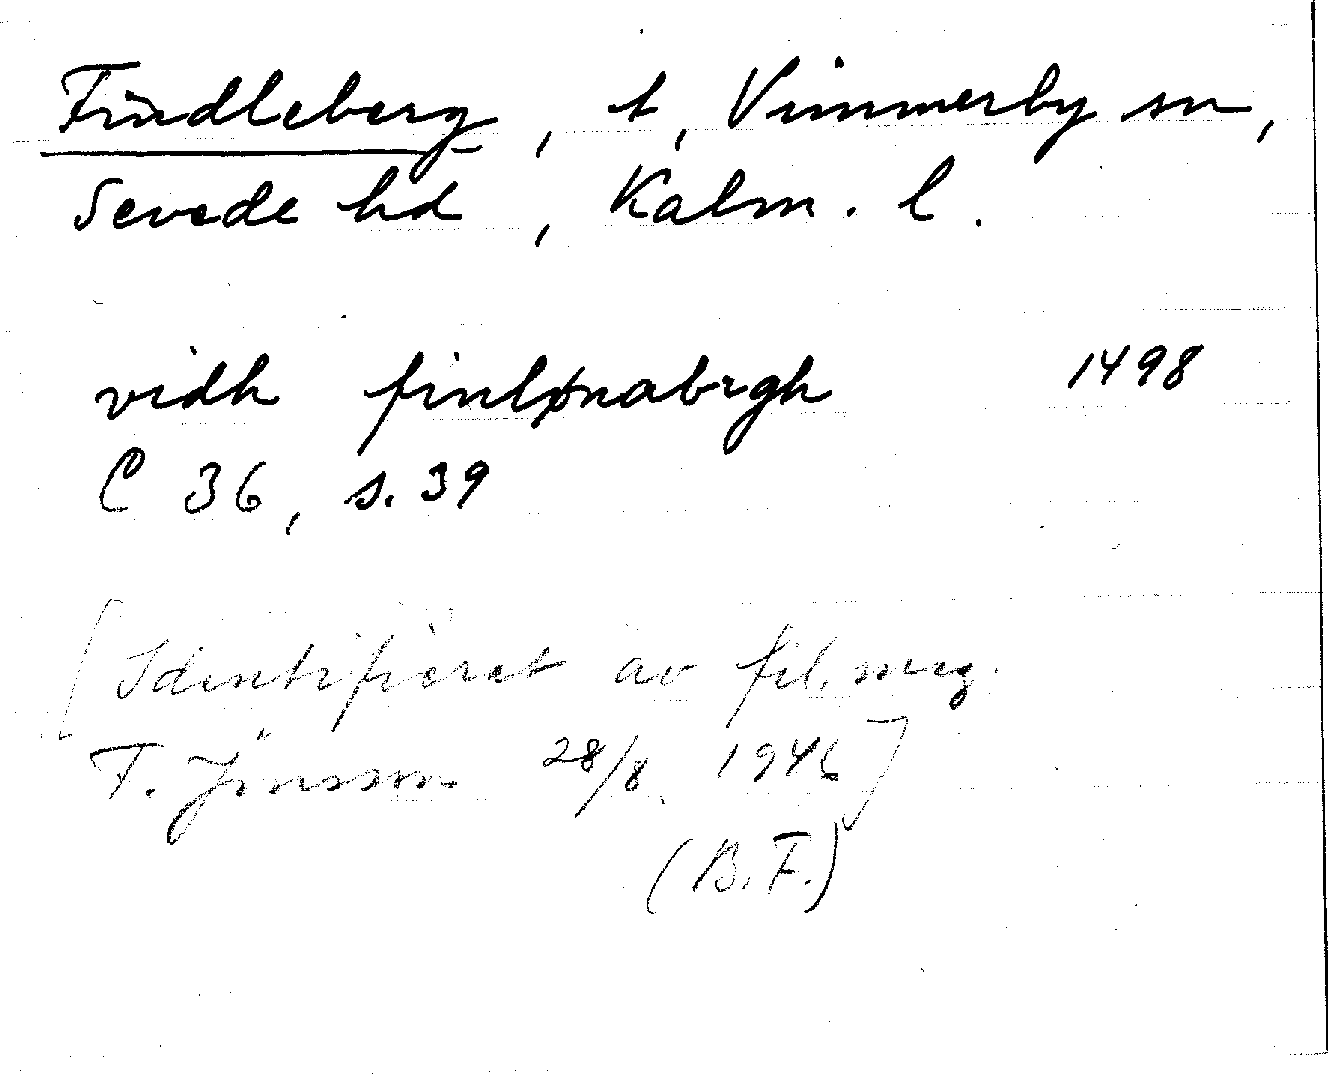 Findleberg, t, Vimmerby sn,
Sevede hd, Kalm. l.
vidh finlønabrgh 1498
C 36, s. 39
[Identifieret av fil. mag.
F. Jönsson 28/8 1946]
(B.F.)